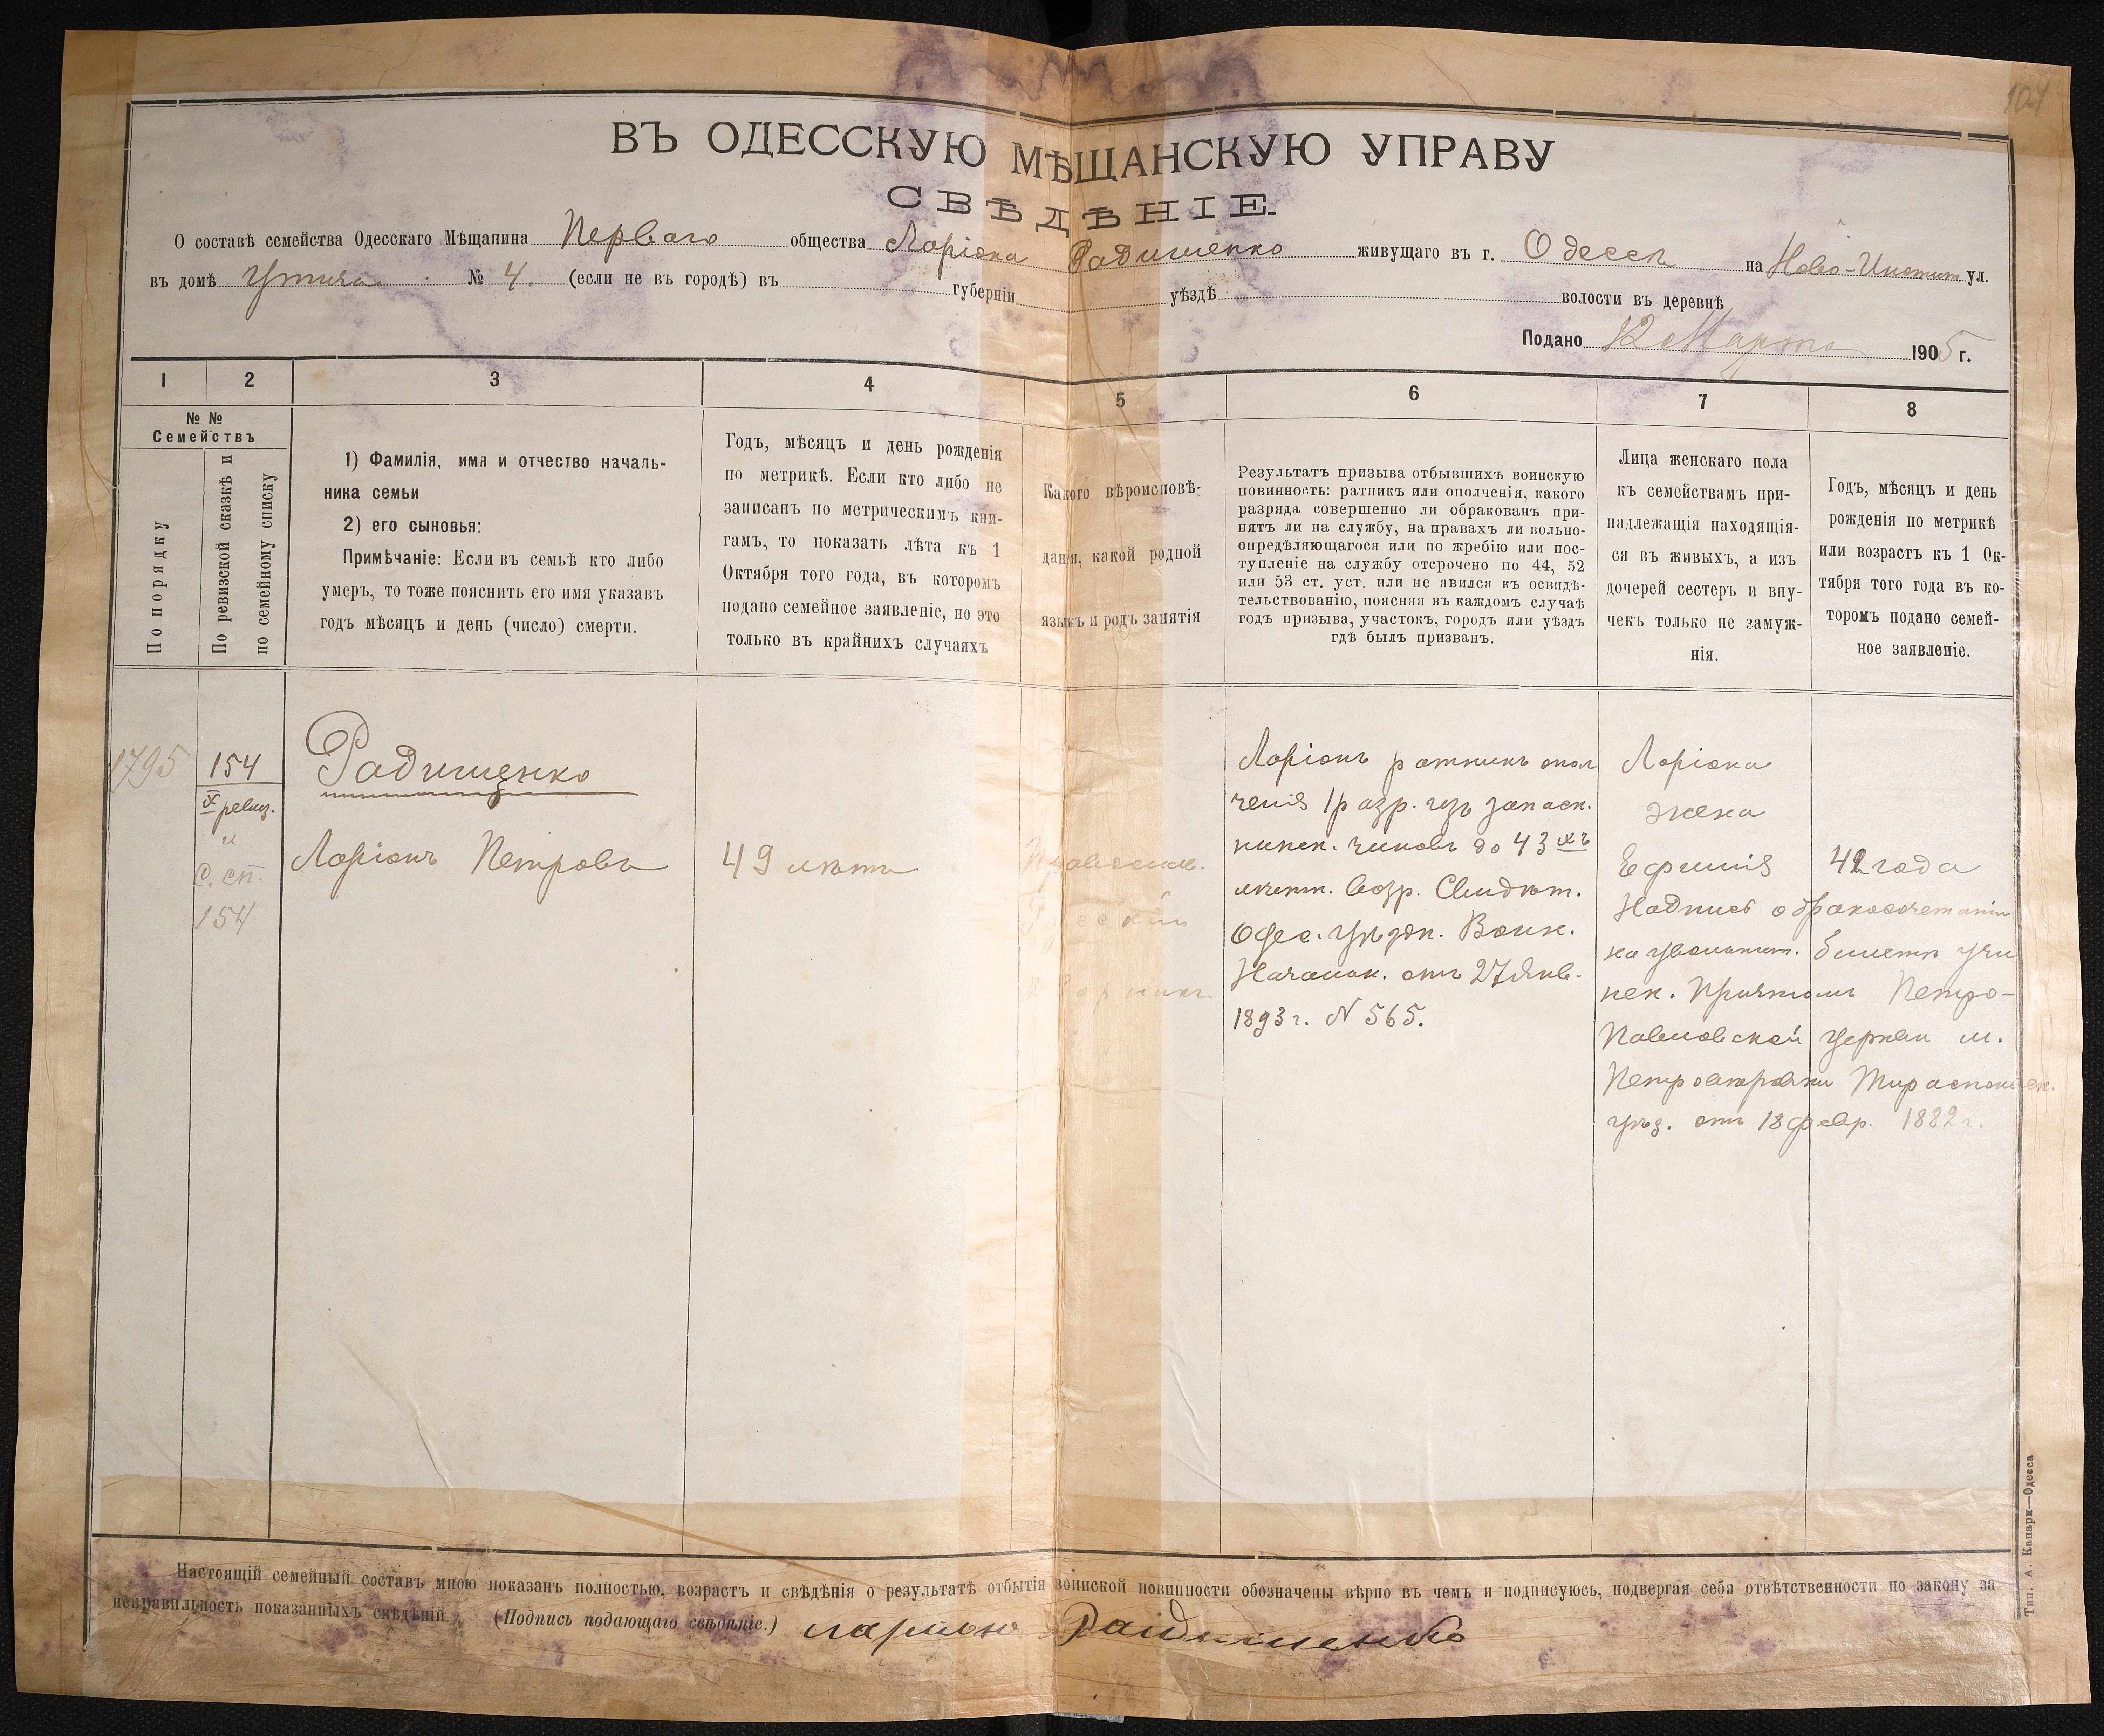 104
ВЪ ОДЕССКУЮ МѢЩАНСКУЮ УПРАВУ
СВѢДѢНІЕ.
О составѣ семейства Одесскаго Мѣщанина Перваго общества Ларіона Радищенко живущаго въ г. Одессѣ на Ново-Институт ул.
въ домѣ № 4. (если не въ городѣ) въ губерніи уѣздѣ волости въ деревнѣ
Подано 12 Марта 1905 г.
1 2 3 4 5 6 7 8
№ №
Семействъ
По порядку
По ревизской сказкѣ и
по семейному списку
1) Фамилія, имя и отчество началь-
ника семьи
2) его сыновья:
Примѣчаніе: Если въ семьѣ кто либо
умеръ, то тоже пояснить его имя указавъ
годъ мѣсяцъ и день (число) смерти.
Годъ, мѣсяцъ и день рожденія
по метрикѣ. Если кто либо не
записанъ по метрическимъ кни-
гамъ, то показать лѣта къ 1
Октября того года, въ которомъ
подано семейное заявленіе, но это
только въ крайнихъ случаяхъ
Какого вѣроисповѣ-
данія, какой родной
языкъ и родъ занятія
Результатъ призыва отбывшихъ воинскую
повинность: ратникъ или ополченія, какого
разряда совершенно ли обракованъ при-
нятъ ли на службу, на правахъ ли вольно-
опредѣляющагося или по жребію или пос-
тупленіе на службу отсрочено по 44, 52
или 53 ст. уст. или не явился къ освидѣ-
тельствованію, поясняя въ каждомъ случаѣ
годъ призыва, участокъ, городъ или уѣздъ
гдѣ былъ призванъ.
Лица женскаго пола
къ семействамъ при-
надлежащія находящія-
ся въ живыхъ, а изъ
дочерей сестеръ и вну-
чекъ только не замуж-
нія.
Годъ, мѣсяцъ и день
рожденія по метрикѣ
или возрастъ къ 1 Ок-
тября того года въ ко-
торомъ подано семей-
ное заявленіе.
1795
154
X ревиз.
и
с. сп.
154
Радищенко
Ларіонъ Петровъ
49 лѣтъ
Православ.
Русскій
Ларіонъ ратникъ опол
ченія 1 разр. изъ запасн.
нижн. чиновъ до 43хъ
лѣтн. возр. Свидѣт.
Одес. Уѣздн. Воин.
Начальн. отъ 27 Янв.
1893 г. N 565.
Ларіона
жена
Ефимія 42 года
Надпись о бракосочетаніи
на увольнит. билетѣ учи
нен. Причтомъ Петро-
Павловской церкви м.
Петровѣровки Тираспольск.
уѣз. отъ 18 февр. 1882 г.
Настоящій семейный составъ мною показанъ полностью, возрастъ и свѣдѣнія о результатѣ отбытія воинской повинности обозначены вѣрно въ чемъ и подписуюсь, подвергая себя отвѣтственности по закону за
неправильность показанныхъ свѣдѣній. (Подпись подающаго свѣдѣніе.) Радищенко
Тип. А. Капари—Одесса